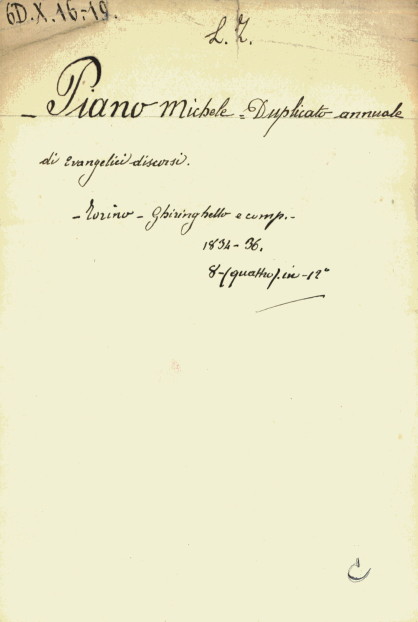 6D.X.16-19.
L. Z.
- Piano Michele = Duplicato annuale
di Evangelici discorsi.
- Torino - Ghiringhello e comp. -
1834-36.
8-(quattro). in-12°